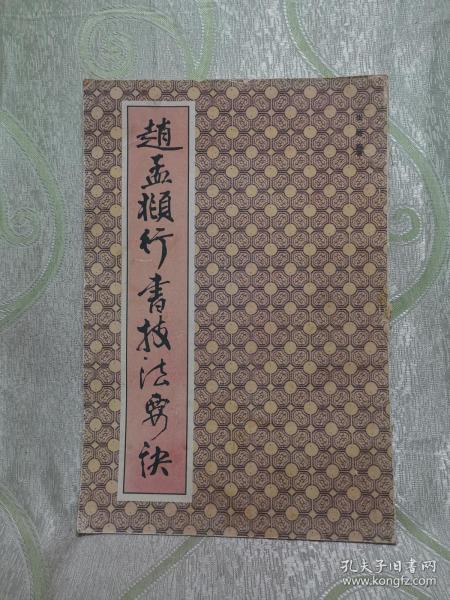 趙孟頫行書技法要訣
孔夫子旧书网
www.kongfz.com